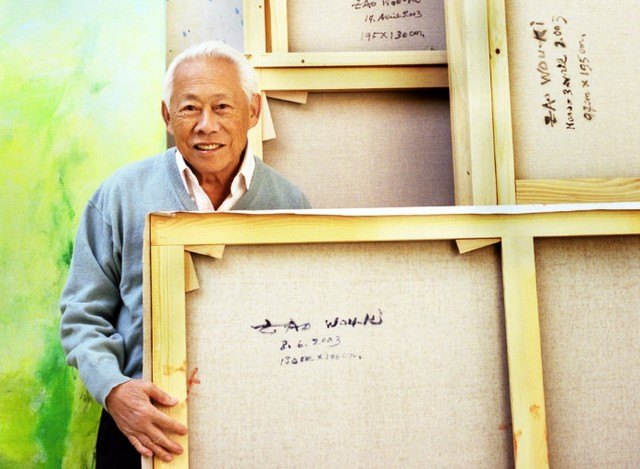 ZAo Wou-Ki
14. Avril 2003
195×130 cm.
ZAo Wou-Ki
3 avril 2003
×195cm.
ZAo Wou-Ki
8. 6. 2003
130cm×